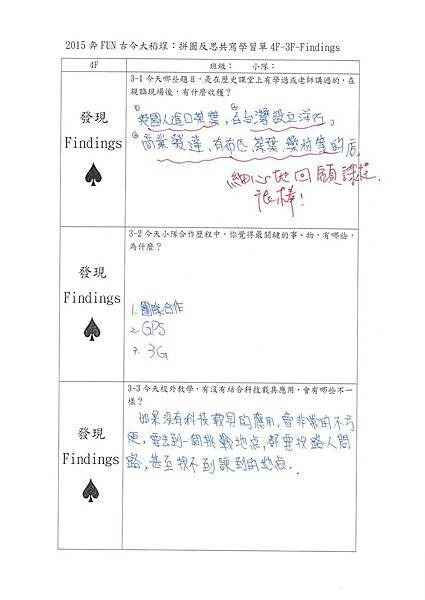 2015 奔 FUN 古今大稻埕：拼圖反思共寫學習單 4F-3F-Findings
4F
班級： 小隊：
3-1 今天哪些題目，是在歷史課堂上有學過或老師講過的，在
親臨現場後，有什麼收穫？
發現
Findings
①英國人進口茶葉，②在台灣設立洋行。
③商業發達，有布匹、茶葉、麵粉等的店。
細心地回顧課程，
很棒！
3-2 今天小隊合作歷程中，你覺得最關鍵的事、物，有哪些，
為什麼？
發現
Findings
1. 團隊合作
2. GPS
3. 3G
3-3 今天校外教學，有沒有結合科技載具應用，會有哪些不一
樣？
發現
Findings
如果沒有科技載具的應用，會非常的不方
便，要去到一個挑戰地点，都要找路人問
路，甚至找不到該到的地点。